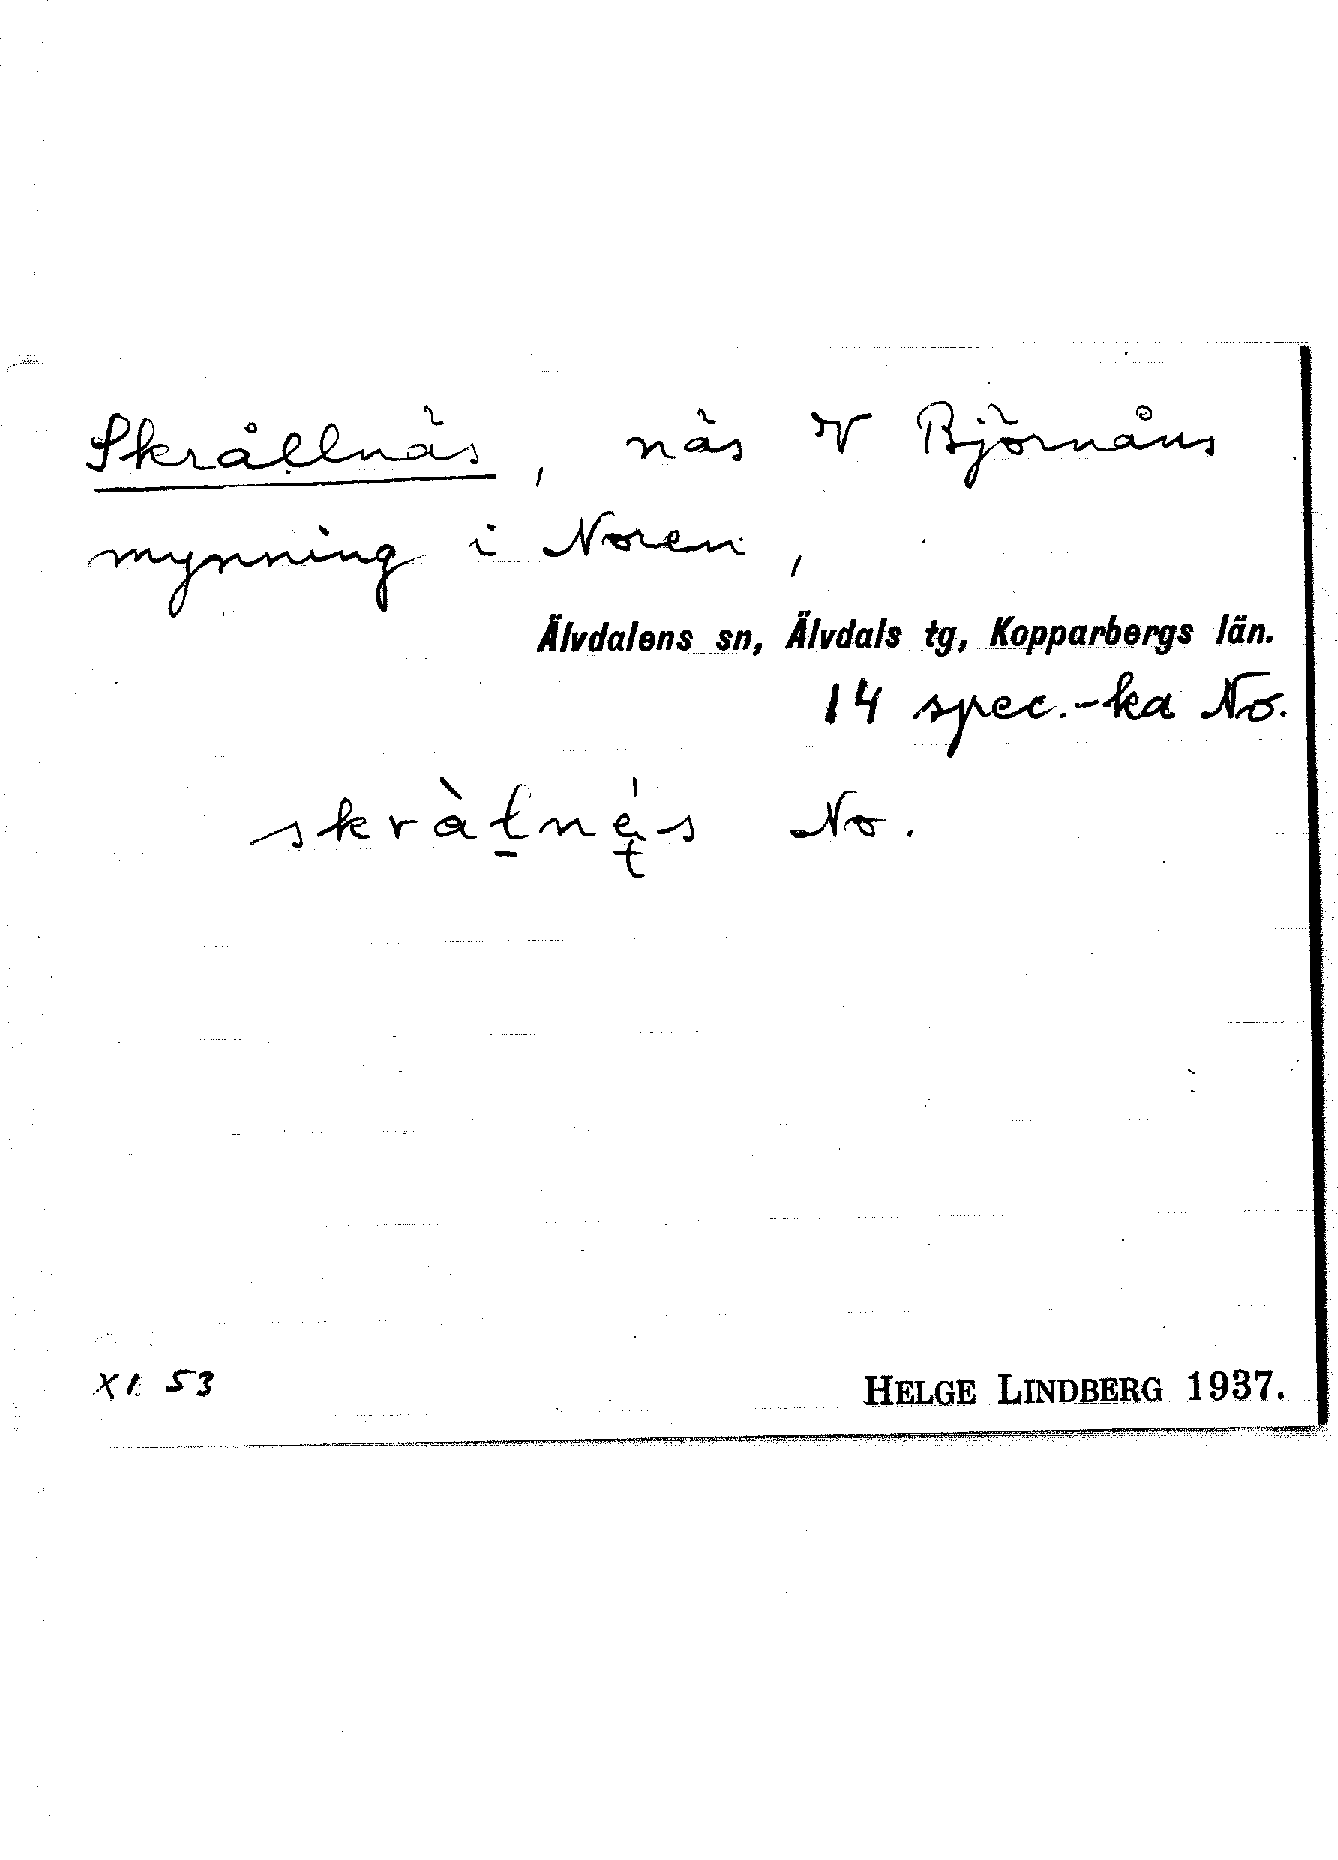 Skrållnäs, näs V Björnåns
mynning i Noren,
Älvdalens sn, Älvdals tg, Kopparbergs län.
14 spec.-ka No.
skràƚ̠nę́s No.
XI 53
HELGE LINDBERG 1937.